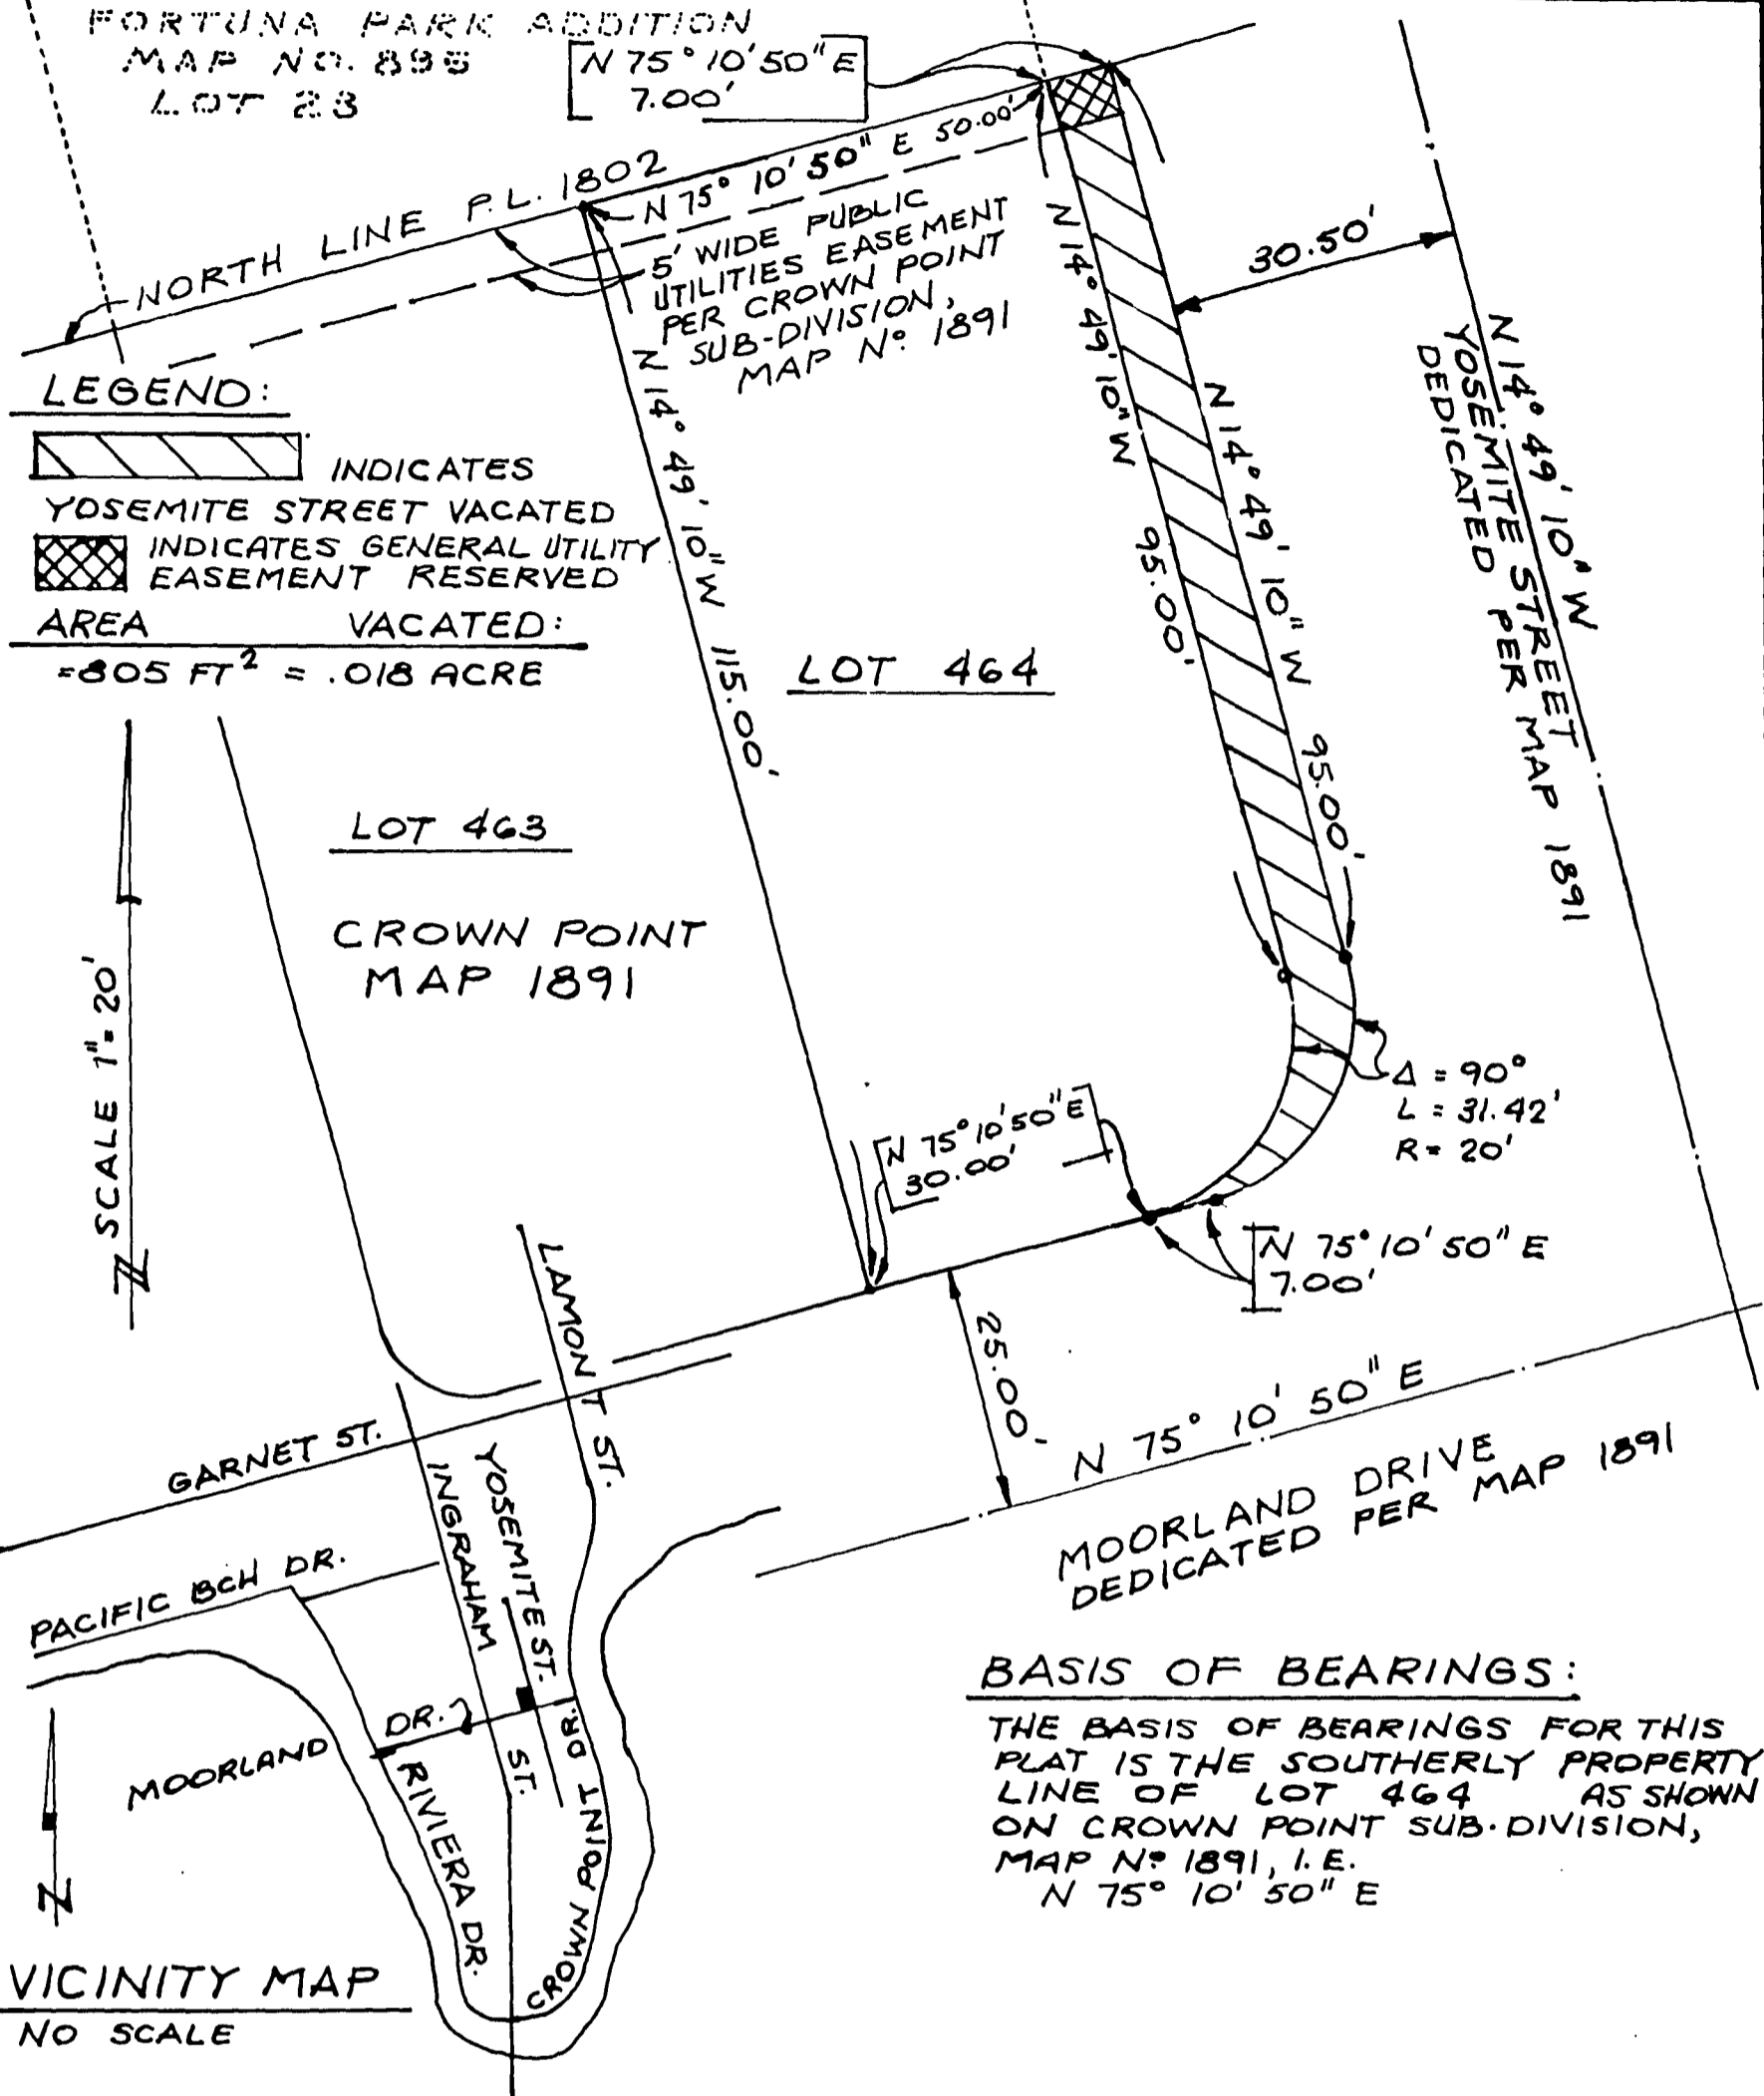 FORTUNA PARK ADDITION
MAP NO. 895
LOT 23
N 75° 10' 50" E
7.00'
NORTH LINE P.L. 1802
N 75° 10' 50" E 50.00'
5' WIDE PUBLIC
UTILITIES EASEMENT
PER CROWN POINT
SUB-DIVISION,
MAP Nº 1891
30.50'
N 14° 49' 10" W
95.00'
N 14° 49' 10" W 95.00'
N 14° 49' 10" W
YOSEMITE STREET
DEDICATED PER MAP 1891
N 14° 49' 10" W 115.00'
LEGEND:
INDICATES
YOSEMITE STREET VACATED
INDICATES GENERAL UTILITY
EASEMENT RESERVED
AREA VACATED:
=805 FT² = .018 ACRE
LOT 464
LOT 463
CROWN POINT
MAP 1891
SCALE 1"=20'
N
Δ = 90°
L = 31.42'
R = 20'
N 75° 10' 50" E
30.00'
N 75° 10' 50" E
7.00'
25.00'
N 75° 10' 50" E
MOORLAND DRIVE
DEDICATED PER MAP 1891
LAMONT ST.
GARNET ST.
INGRAHAM ST.
YOSEMITE ST.
PACIFIC BCH DR.
MOORLAND DR.
RIVIERA DR.
CROWN POINT DR.
N
VICINITY MAP
NO SCALE
BASIS OF BEARINGS:
THE BASIS OF BEARINGS FOR THIS
PLAT IS THE SOUTHERLY PROPERTY
LINE OF LOT 464 AS SHOWN
ON CROWN POINT SUB-DIVISION,
MAP Nº 1891, I.E.
N 75° 10' 50" E